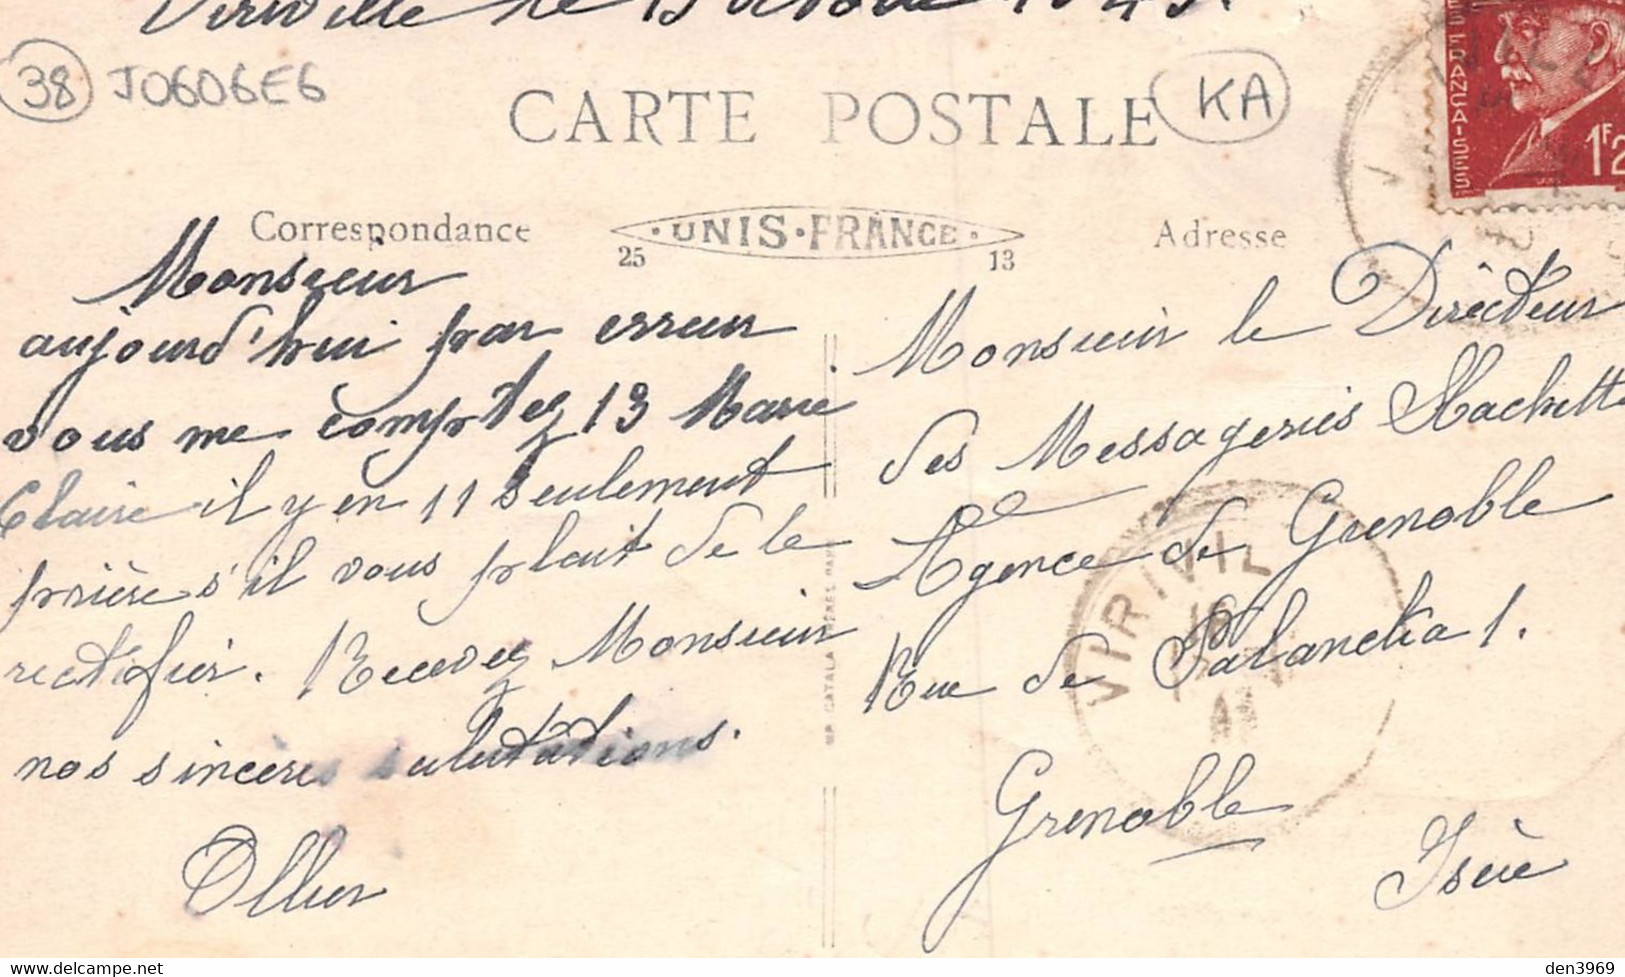 Viriville le 15 octobre
38 J0606E6
CARTE POSTALE
KA
ES FRANCAISES
1F2
Correspondance
UNIS·FRANCE·
25 13
Adresse
Monsieur
aujourd'hui par erreur
vous me comptez 13 Marie
Claire il y en 11 seulement
prière s'il vous plait de le
rectifier. Recevez Monsieur
nos sincères salutations.
Ollier
Monsieur le Directeur
des Messageries Hachette
Agence de Grenoble
Rue de Palanka 1.
Grenoble
Isère
VIRIVIL
CATALA FRERES
den3969